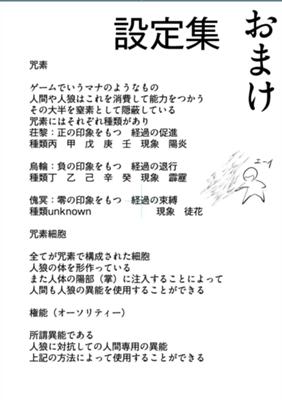 おまけ
設定集
咒素
ゲームでいうマナのようなもの
人間や人狼はこれを消費して能力をつかう
その大半を窒素として隠蔽している
咒素にはそれぞれ種類があり
荘黎：正の印象をもつ　経過の促進
種類丙　甲　戊　庚　壬　現象　陽炎
烏輪：負の印象をもつ　経過の退行
種類丁　乙　己　辛　癸　現象　霹靂
傀冥：零の印象をもつ　経過の束縛
種類unknown　　　　　現象　徒花
咒素細胞
全てが咒素で構成された細胞
人狼の体を形作っている
また人体の陽部（掌）に注入することによって
人間も人狼の異能を使用することができる
権能（オーソリティー）
所謂異能である
人狼に対抗しての人間専用の異能
上記の方法によって使用することができる